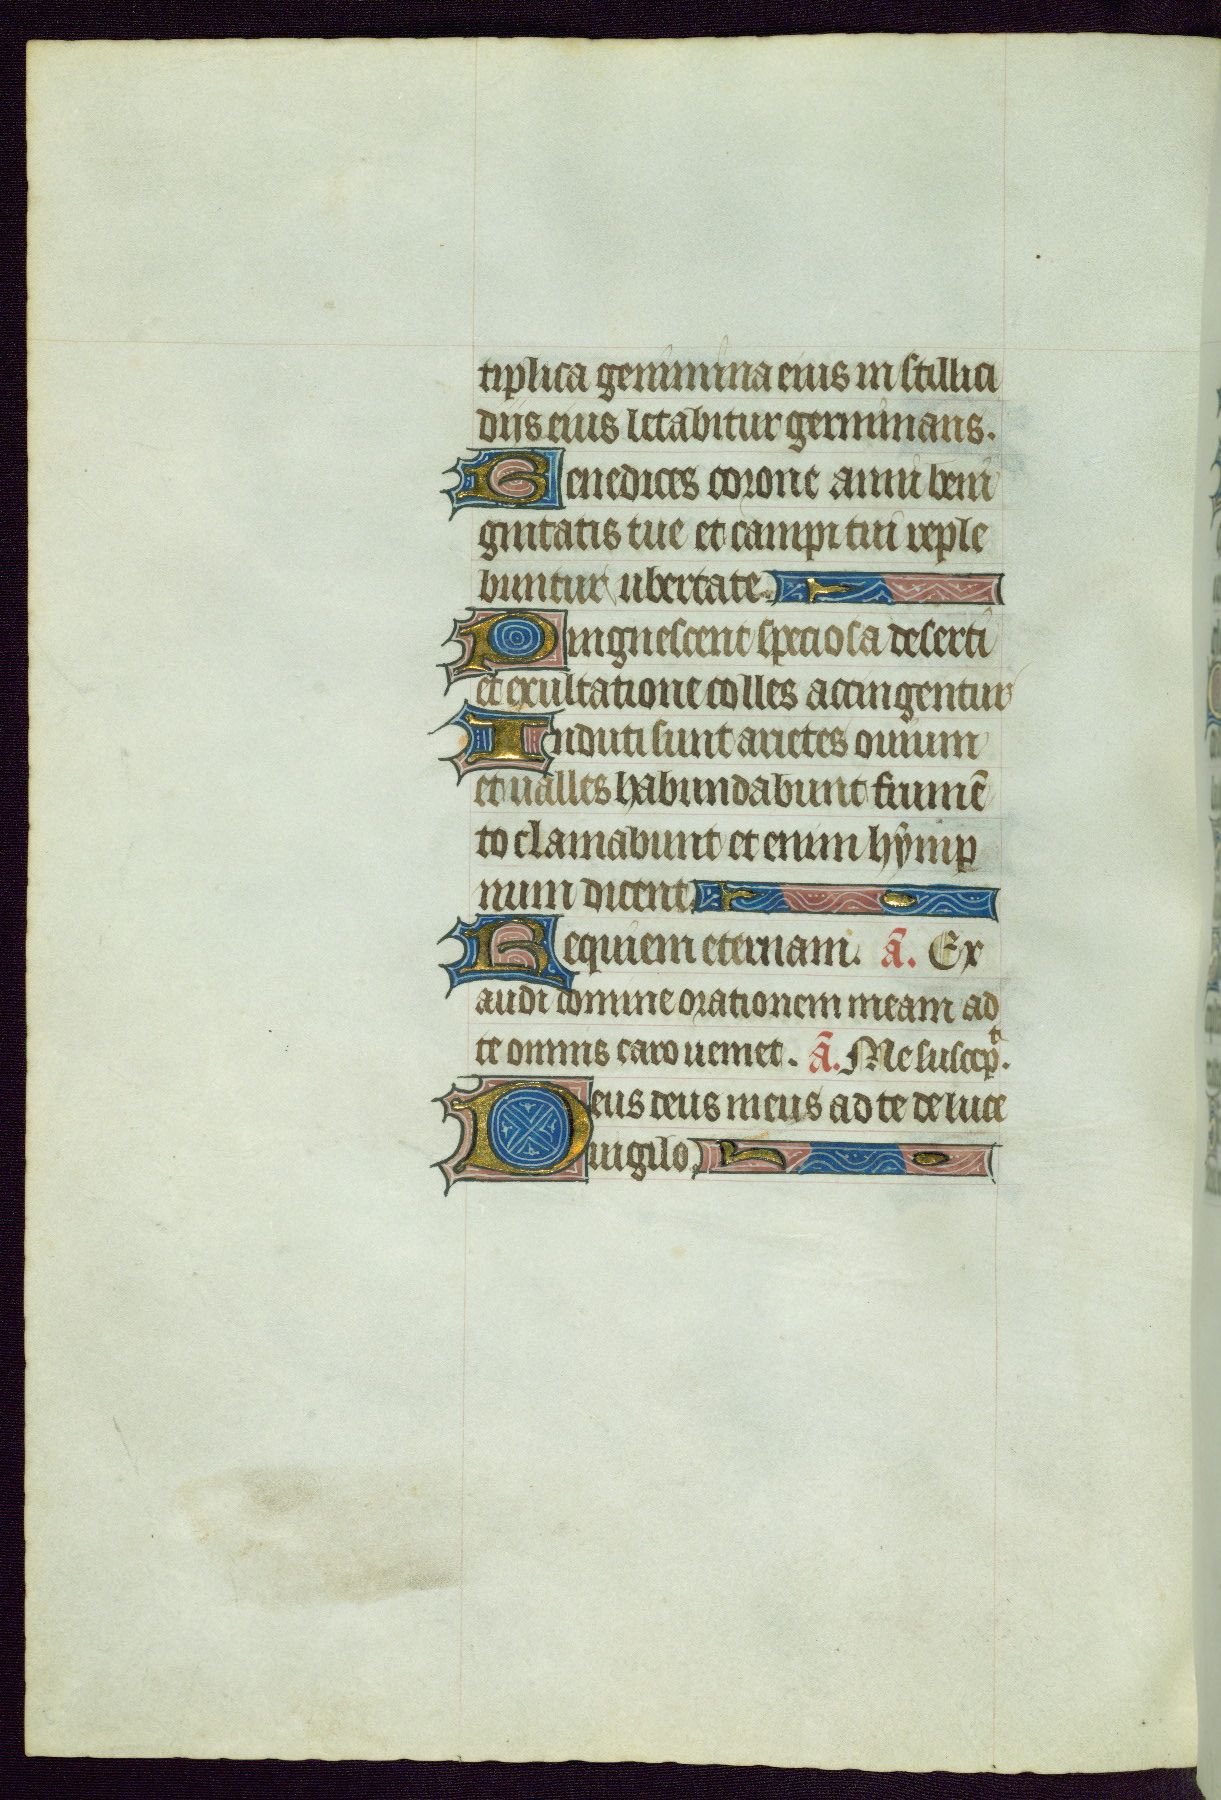 tiplica genimina eius in stillici
dijs eius letabitur germinans.
Benedices corone anni beni
gnitatis tue et campi tui reple
buntur ubertate.
Pinguescent speciosa deserti
et exultatione colles accingentur
Induti sunt arietes ouium
et ualles habundabunt frumē
to clamabunt et enim hymp
num dicent.
Requiem eternam. Ā. Ex
audi domine orationem meam ad
te omnis caro ueniet. Ā. Me suscep^t.
Deus deus meus ad te de luce
uigilo.